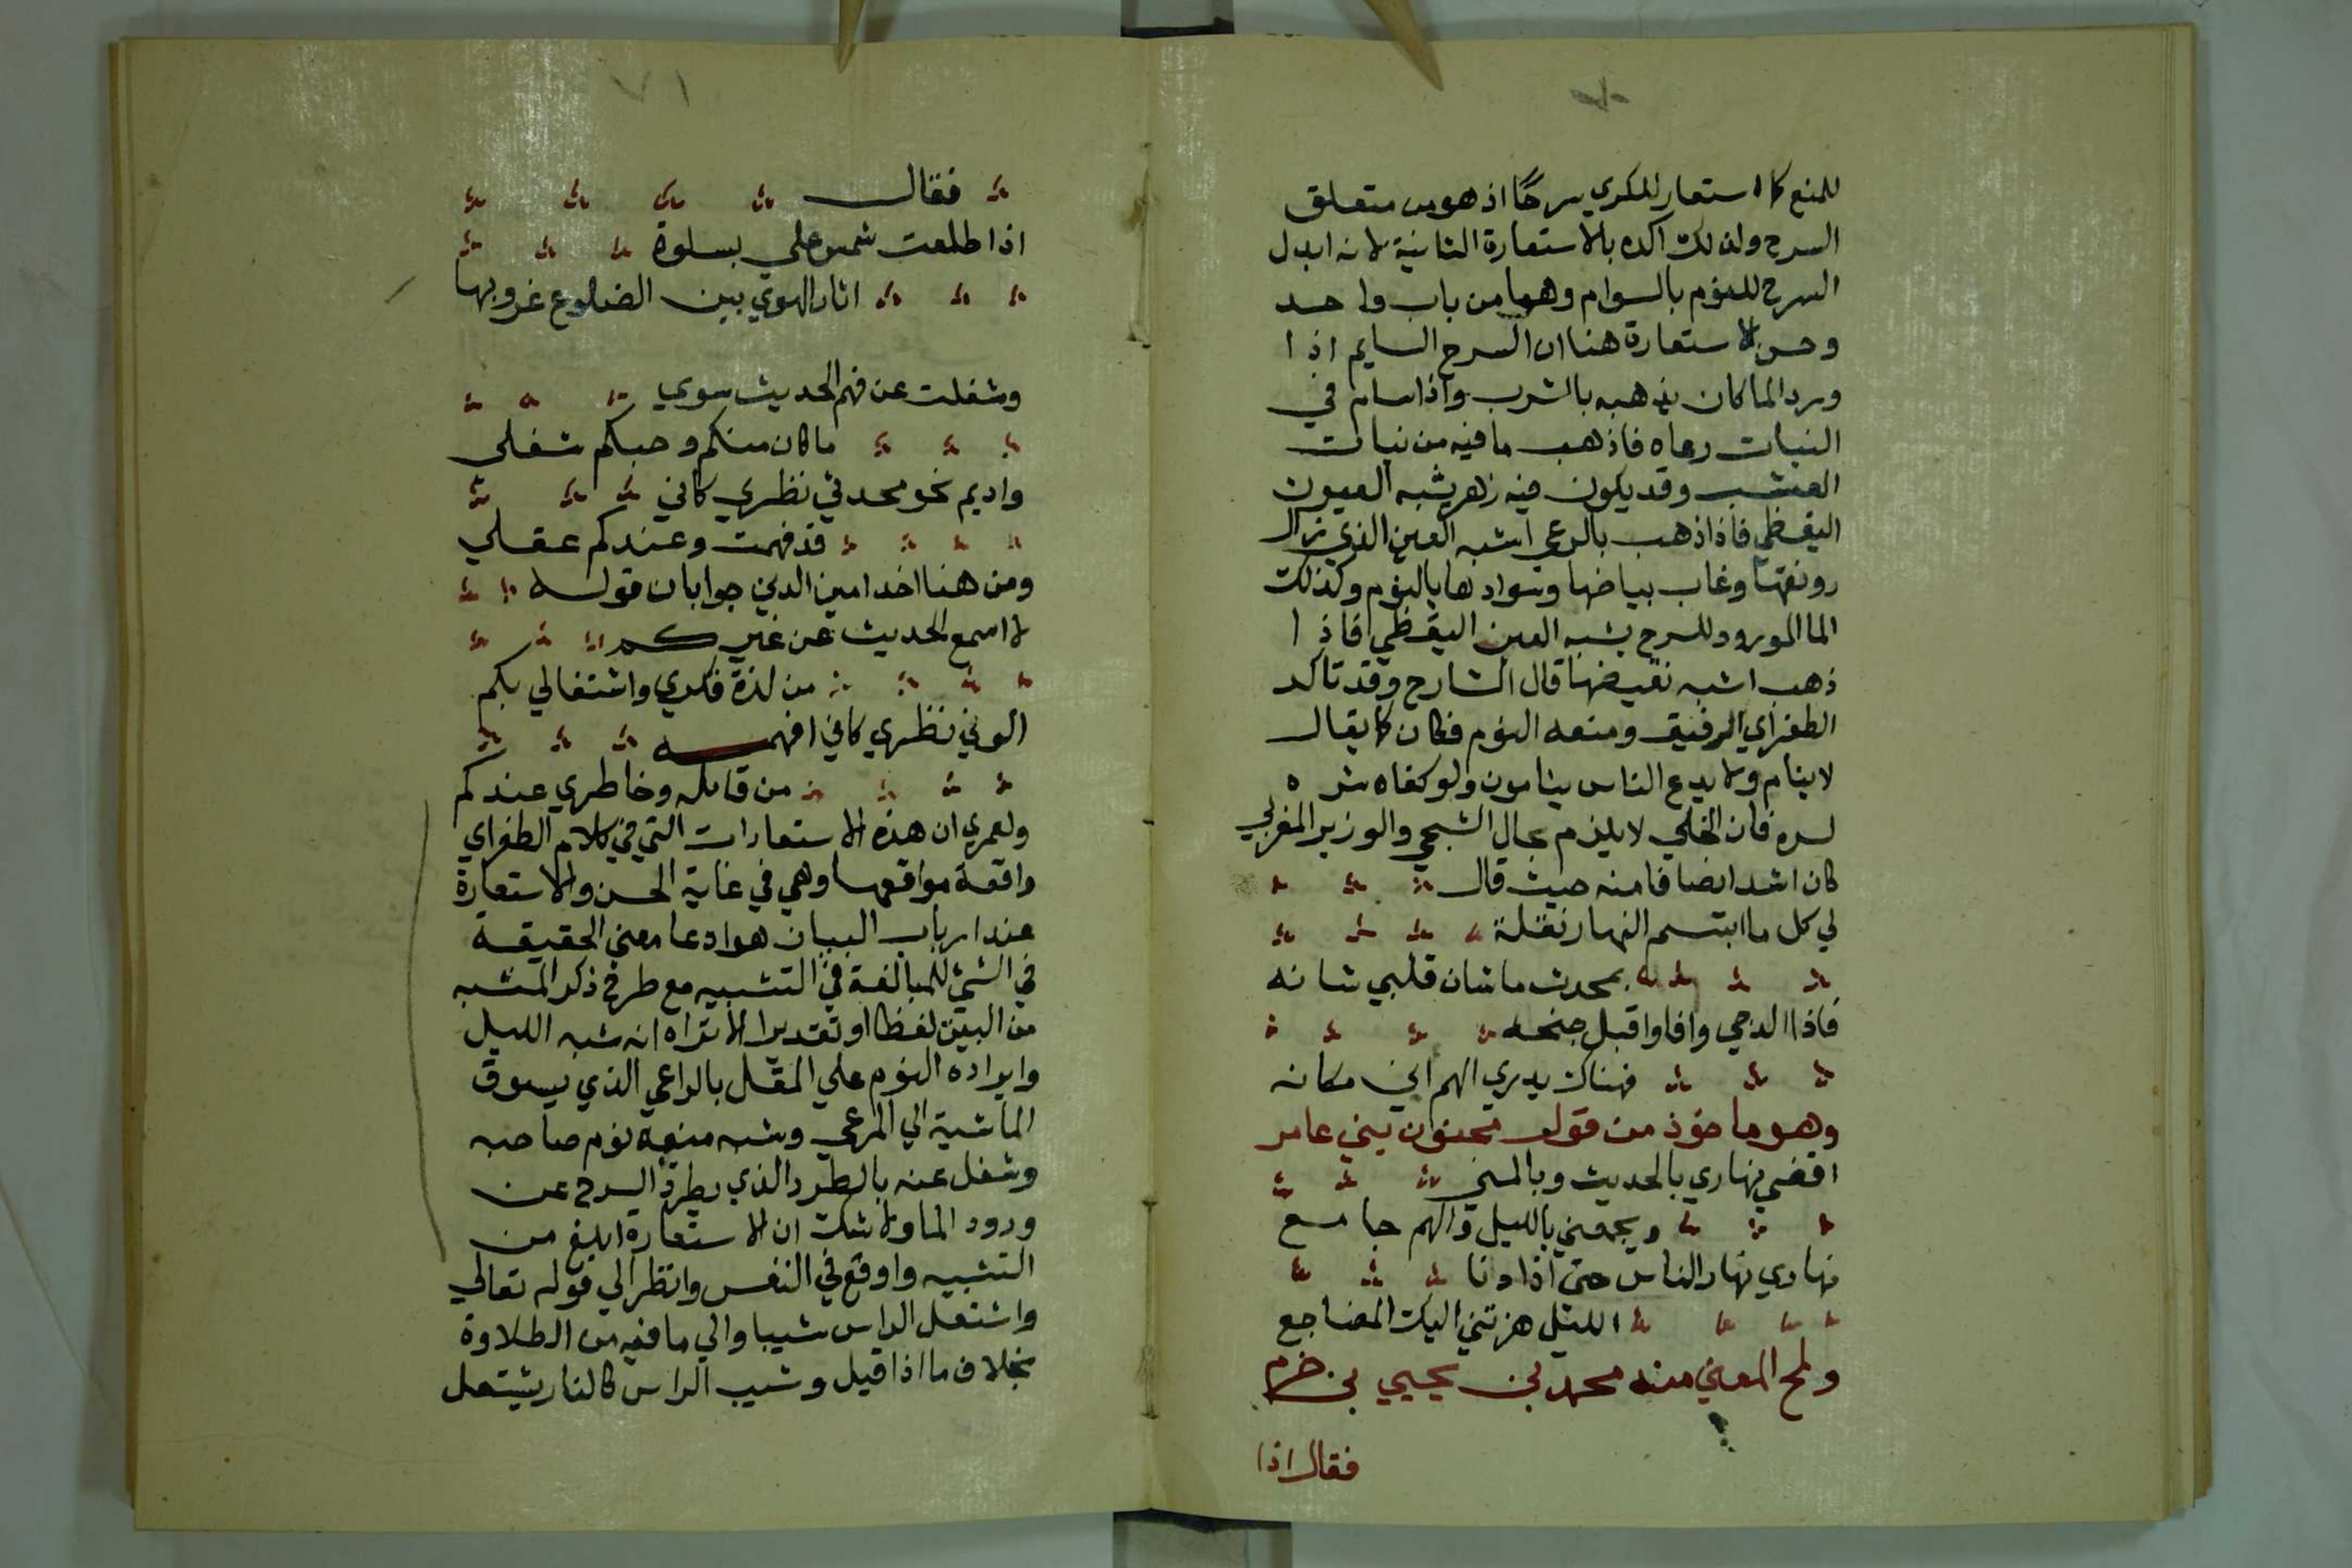 للمنع كما استعار للكري سرحًا اذ هو من متعلق
السرح ولذلك اكده بالاستعارة الثانية لانه ابدل
السرح للنوم بالسوام وهما من باب واحد
وحسن الاستعارة هنا ان السرح السايم اذا
ورد الما كان يذهبه بالشرب واذا سام في
النبات رعاه فاذهب ما فيه من نبات
العشب وقد يكون فيه زهر يشبه العيون
اليقظي فاذا ذهب بالرعي اشبه العين الذي زال
رونقها وغاب بياضها وسوادها بالنوم وكذلك
الما المورود للسرح يشبه العين اليقظي فاذا
ذهب اشبه نقيضها قال الشارح وقد تاكد
الطغراي الرفيق ومنعه النوم فكان كما يقال
لا ينام ولا يدع الناس ينامون ولو كفاه شره
لسره فان الخلي لا يلزم بحال الشجي والوزير المغربي
كان اشد انصافا منه حيث قال
لي كل ما ابتسم النهار نقلة
بمحدث ما شان قلبي شانه
فاذا الدجي وافا واقبل جنحه
فهناك يدري الهم اين مكانه
وهو ماخوذ من قول مجنون بني عامر
اقضي نهاري بالحديث وبالمني
ويجمعني بالليل والهم جامع
نهاري نهار الناس حتى اذا دنا
الليل هزتني اليك المضاجع
ولمح المعني منه محمد بن يحيي بن خرم
فقال اذا
٧١
فقال
اذا طلعت شمس علي بسلوة
اثار الهوي بين الضلوع غروبها
وشغلت عن فهم الحديث سوي
ما كان منكم وحبكم شغلي
واديم نحو محدثي نظري كاني
قد فهمت وعندكم عقلي
ومن هنا اخذ امين الدين جوابان قوله
لا اسمع الحديث عن غيركم
من لذة فكري واشتغالي بكم
الوني نظري كاني افهمه
من قايله وخاطري عندكم
ولعمري ان هذه الاستعارات التي في كلام الطغراي
واقعة مواقعها وهي في غاية الحسن والاستعارة
عند ارباب البيان هو ادعا معني الحقيقة
في الشي للمبالغة في التشبيه مع طرح ذكر المشبه
من البين لفظا او تقديرا الا تراه انه شبه الليل
وايراده النوم علي المقل بالراعي الذي يسوق
الماشية الي المرعي وشبه منعه نوم صاحبه
وشغل عنه بالطرد الذي يطرد السرح عن
ورود الما ولا شك ان الاستعارة ابلغ من
التشبيه واوقع في النفس وانظر الي قوله تعالي
واشتعل الراس شيبا والي ما فيه من الطلاوة
بخلاف ما اذا قيل وشيب الراس كالنار يشتعل